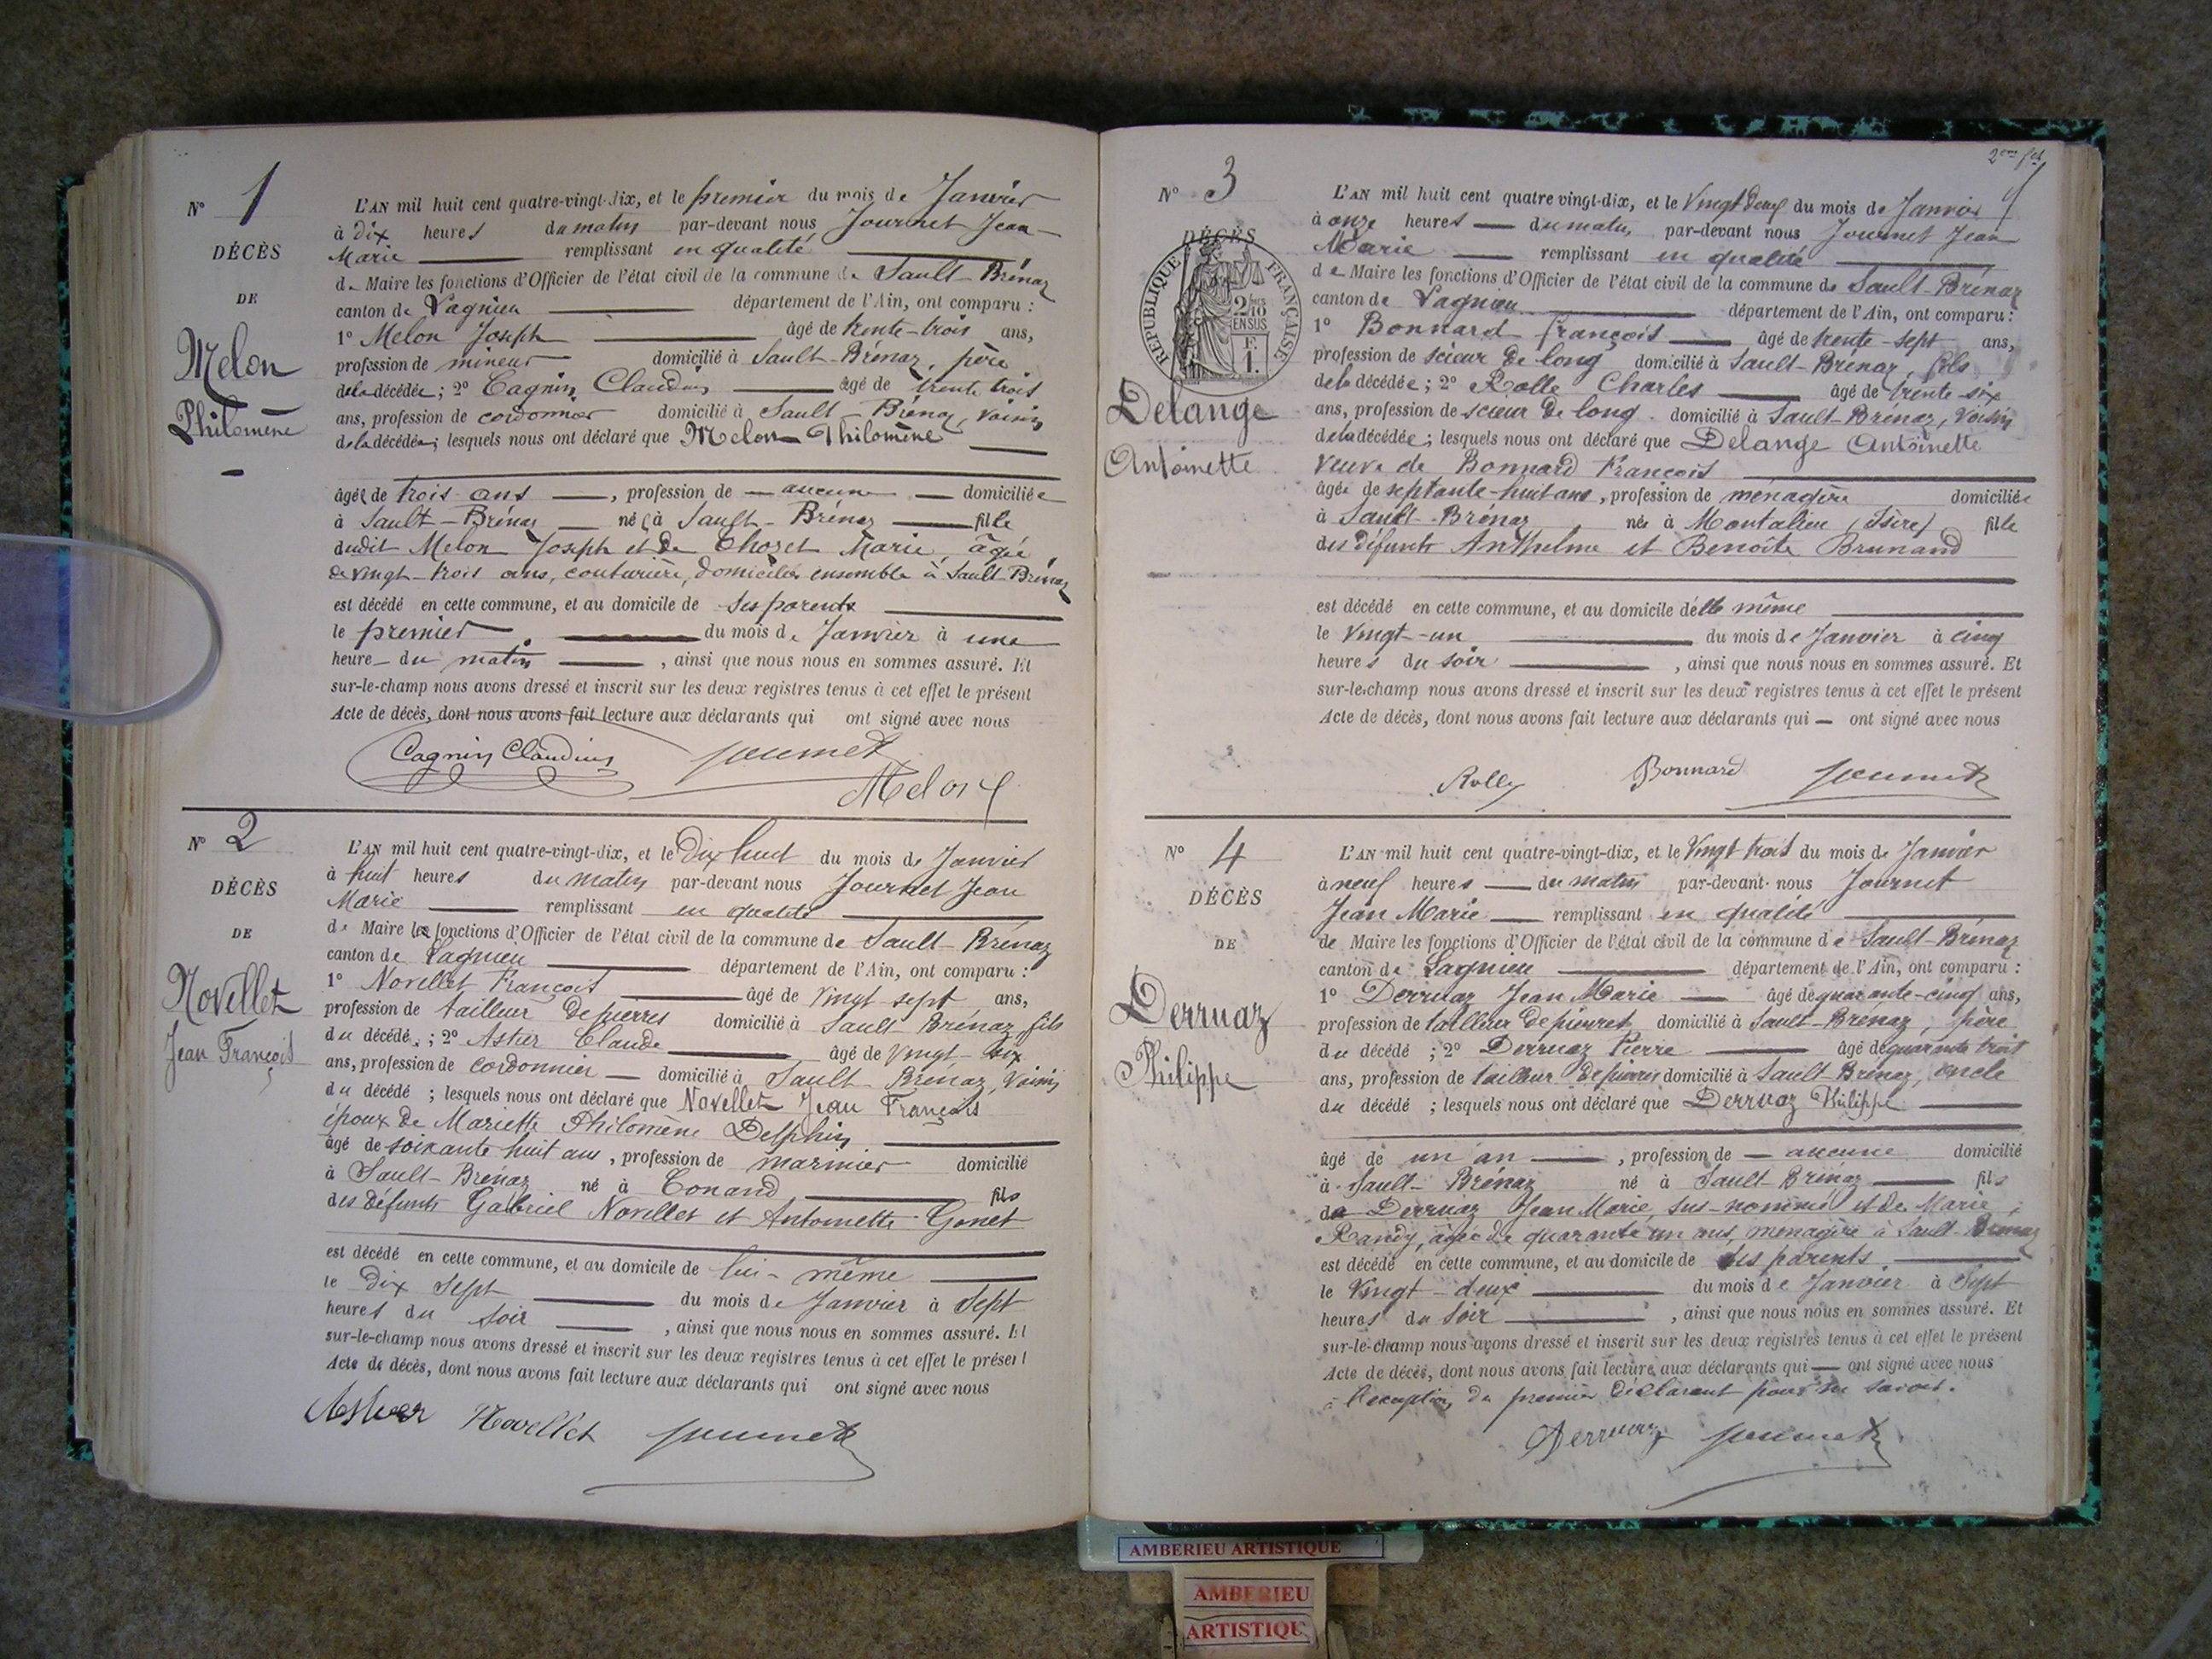 N° 1
DÉCÈS
DE
Melon
Philomène
L'AN mil huit cent quatre-vingt-dix, et le premier du mois de Janvier
à dix heures du matin par-devant nous Journet Jean
Marie remplissant en qualité
de Maire les fonctions d'Officier de l'état civil de la commune de Sault-Brénaz
canton de Lagnieu département de l'Ain, ont comparu :
1° Melon Joseph âgé de trente-trois ans,
profession de mineur domicilié à Sault-Brénaz, père
de la décédée ; 2° Cagnin Claudius âgé de trente trois
ans, profession de cordonnier domicilié à Sault-Brénaz, voisin
de la décédée ; lesquels nous ont déclaré que Melon Philomène
âgée de trois ans, profession de aucune domiciliée
à Sault-Brénaz née à Sault-Brénaz fille
dudit Melon Joseph et de Marie, âgée
de vingt-trois ans, couturière, domiciliés ensemble à Sault-Brénaz
est décédé en cette commune, et au domicile de ses parents
le premier du mois de Janvier à une
heure du matin, ainsi que nous nous en sommes assuré. Et
sur-le-champ nous avons dressé et inscrit sur les deux registres tenus à cet effet le présent
Acte de décès, dont nous avons fait lecture aux déclarants qui ont signé avec nous
Cagnin Claudius Journet
Melon
N° 2
DÉCÈS
DE
Novellet
Jean François
L'AN mil huit cent quatre-vingt-dix, et le dix huit du mois de Janvier
à huit heures du matin par-devant nous Journet Jean
Marie remplissant en qualité
de Maire les fonctions d'Officier de l'état civil de la commune de Sault-Brénaz
canton de Lagnieu département de l'Ain, ont comparu :
1° Novellet François âgé de vingt-sept ans,
profession de tailleur de pierres domicilié à Sault-Brénaz, fils
du décédé ; 2° Astier Claude âgé de vingt-six
ans, profession de cordonnier domicilié à Sault-Brénaz, voisin
du décédé ; lesquels nous ont déclaré que Novellet Jean François
époux de Mariette Philomène Delphin
âgé de soixante huit ans, profession de marinier domicilié
à Sault-Brénaz né à Conand fils
des défunts Gabriel Novellet et Antoinette Gonet
est décédé en cette commune, et au domicile de lui-même
le dix sept du mois de Janvier à sept
heures du soir, ainsi que nous nous en sommes assuré. Et
sur-le-champ nous avons dressé et inscrit sur les deux registres tenus à cet effet le présent
Acte de décès, dont nous avons fait lecture aux déclarants qui ont signé avec nous
Astier Novellet Journet
N° 3
DÉCÈS
RÉPUBLIQUE FRANÇAISE
2/10 EN SUS
1 F.
Delange
Antoinette
L'AN mil huit cent quatre-vingt-dix, et le vingt deux du mois de Janvier
à onze heures du matin par-devant nous Journet Jean
Marie remplissant en qualité
de Maire les fonctions d'Officier de l'état civil de la commune de Sault-Brénaz
canton de Lagnieu département de l'Ain, ont comparu :
1° Bonnard François âgé de trente-sept ans,
profession de scieur de long domicilié à Sault-Brénaz, fils
de la décédée ; 2° Rolle Charles âgé de trente-six
ans, profession de scieur de long domicilié à Sault-Brénaz, voisin
de la décédée ; lesquels nous ont déclaré que Delange Antoinette
veuve de Bonnard François
âgée de septante-huit ans, profession de ménagère domiciliée
à Sault-Brénaz née à Montalieu (Isère) fille
des défunts Anthelme et Benoîte Brunand
est décédé en cette commune, et au domicile d'elle même
le vingt-un du mois de Janvier à cinq
heures du soir, ainsi que nous nous en sommes assuré. Et
sur-le-champ nous avons dressé et inscrit sur les deux registres tenus à cet effet le présent
Acte de décès, dont nous avons fait lecture aux déclarants qui ont signé avec nous
Bonnard Journet
N° 4
DÉCÈS
DE
Derruaz
Philippe
L'AN mil huit cent quatre-vingt-dix, et le vingt trois du mois de Janvier
à neuf heures du matin par-devant nous Journet
Jean Marie remplissant en qualité
de Maire les fonctions d'Officier de l'état civil de la commune de Sault-Brénaz
canton de Lagnieu département de l'Ain, ont comparu :
1° Derruaz Jean Marie âgé de quarante-cinq ans,
profession de tailleur de pierres domicilié à Sault-Brénaz, père
du décédé ; 2° Derruaz Pierre âgé de quarante trois
ans, profession de tailleur de pierres domicilié à Sault-Brénaz, oncle
du décédé ; lesquels nous ont déclaré que Derruaz Philippe
âgé de un an, profession de aucune domicilié
à Sault-Brénaz né à Sault-Brénaz fils
de Derruaz Jean Marie, sus-nommé et de Marie
Randy, âgée de quarante un ans, ménagère à Sault-Brénaz
est décédé en cette commune, et au domicile de ses parents
le vingt-deux du mois de Janvier à sept
heures du soir, ainsi que nous nous en sommes assuré. Et
sur-le-champ nous avons dressé et inscrit sur les deux registres tenus à cet effet le présent
Acte de décès, dont nous avons fait lecture aux déclarants qui ont signé avec nous
à l'exception du premier déclarant pour ne savoir.
Derruaz Journet
AMBERIEU ARTISTIQUE
AMBERIEU
ARTISTIQU